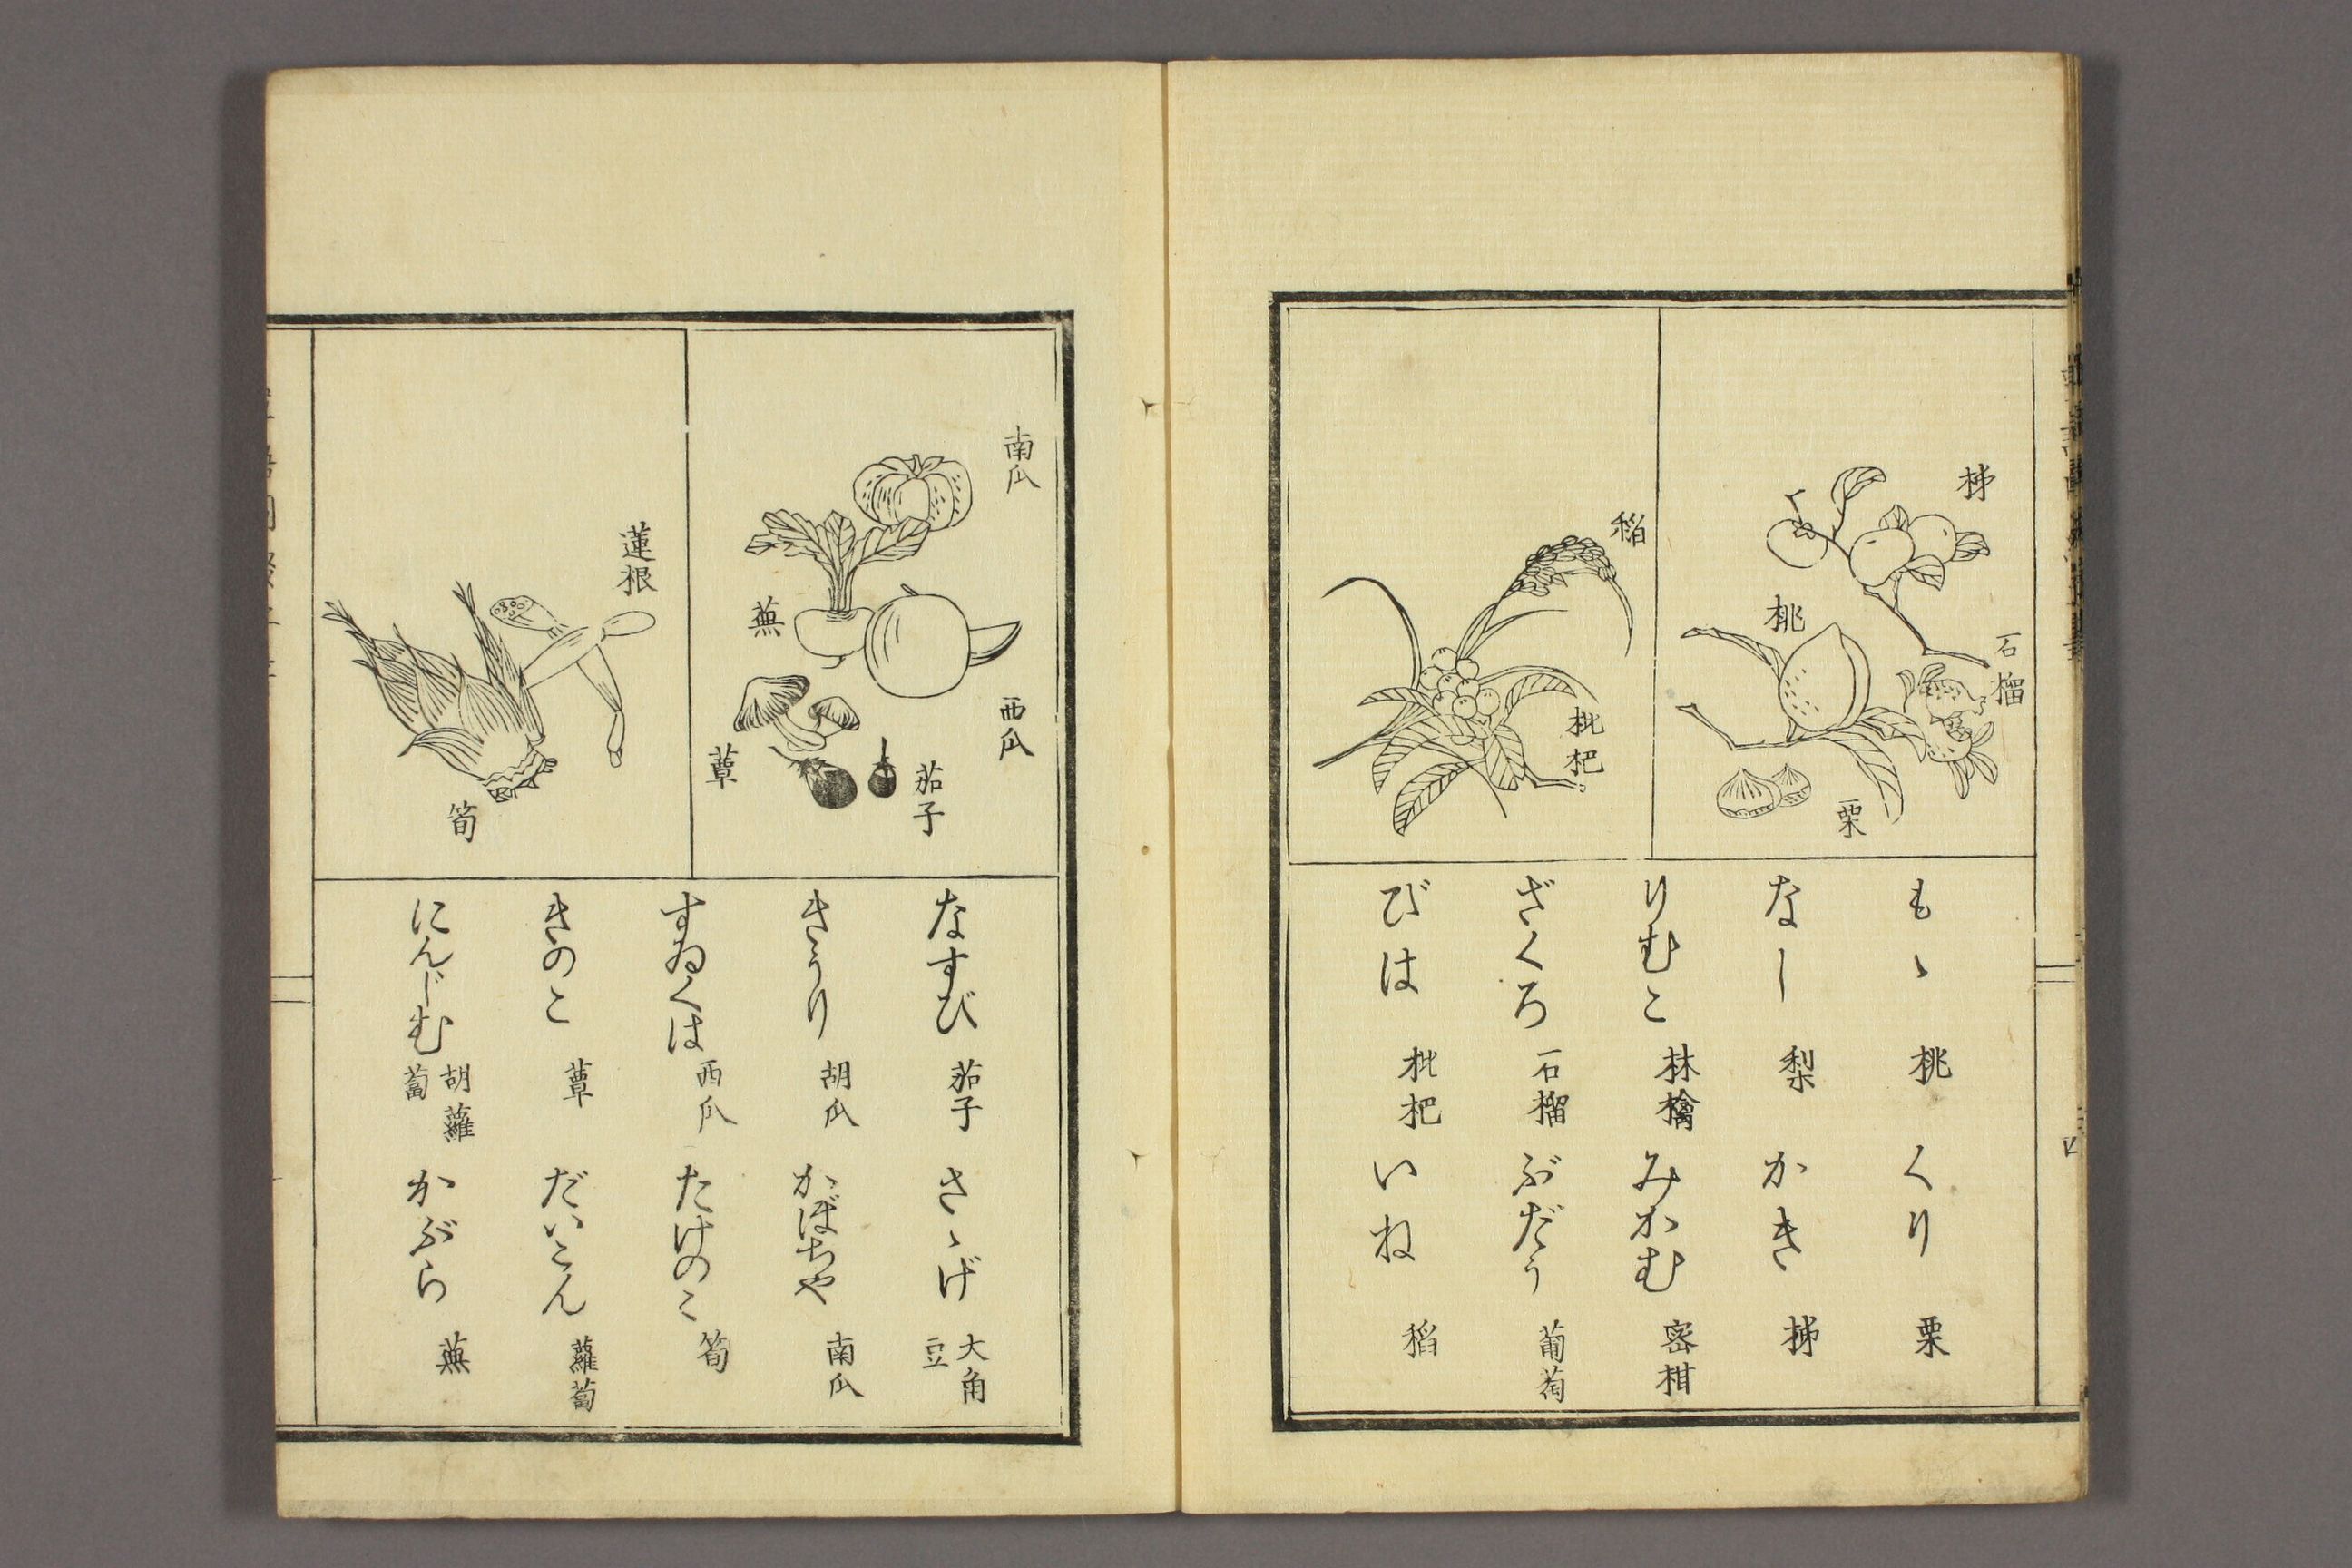 柹
石榴
桃
栗
稲
枇杷
もゝ 桃 くり 栗
なし 梨 かき 柹
りむこ 林檎 みかむ 密柑
ざくろ 石榴 ぶだう 葡萄
びは 枇杷 いね 稻
南瓜
西瓜
蕪
茄子
蕈
蓮根
筍
なすび 茄子 さゝげ 大角豆
きうり 胡瓜 かぼちや 南瓜
すゐくは 西瓜 たけのこ 筍
きのこ 蕈 だいこん 蘿蔔
にんじむ 胡蘿蔔 かぶら 蕪